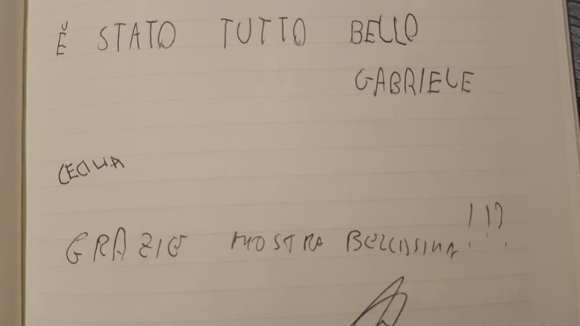 È STATO TUTTO BELLO
GABRIELE
CECILIA
GRAZIE MOSTRA BELLISSIMA!!!